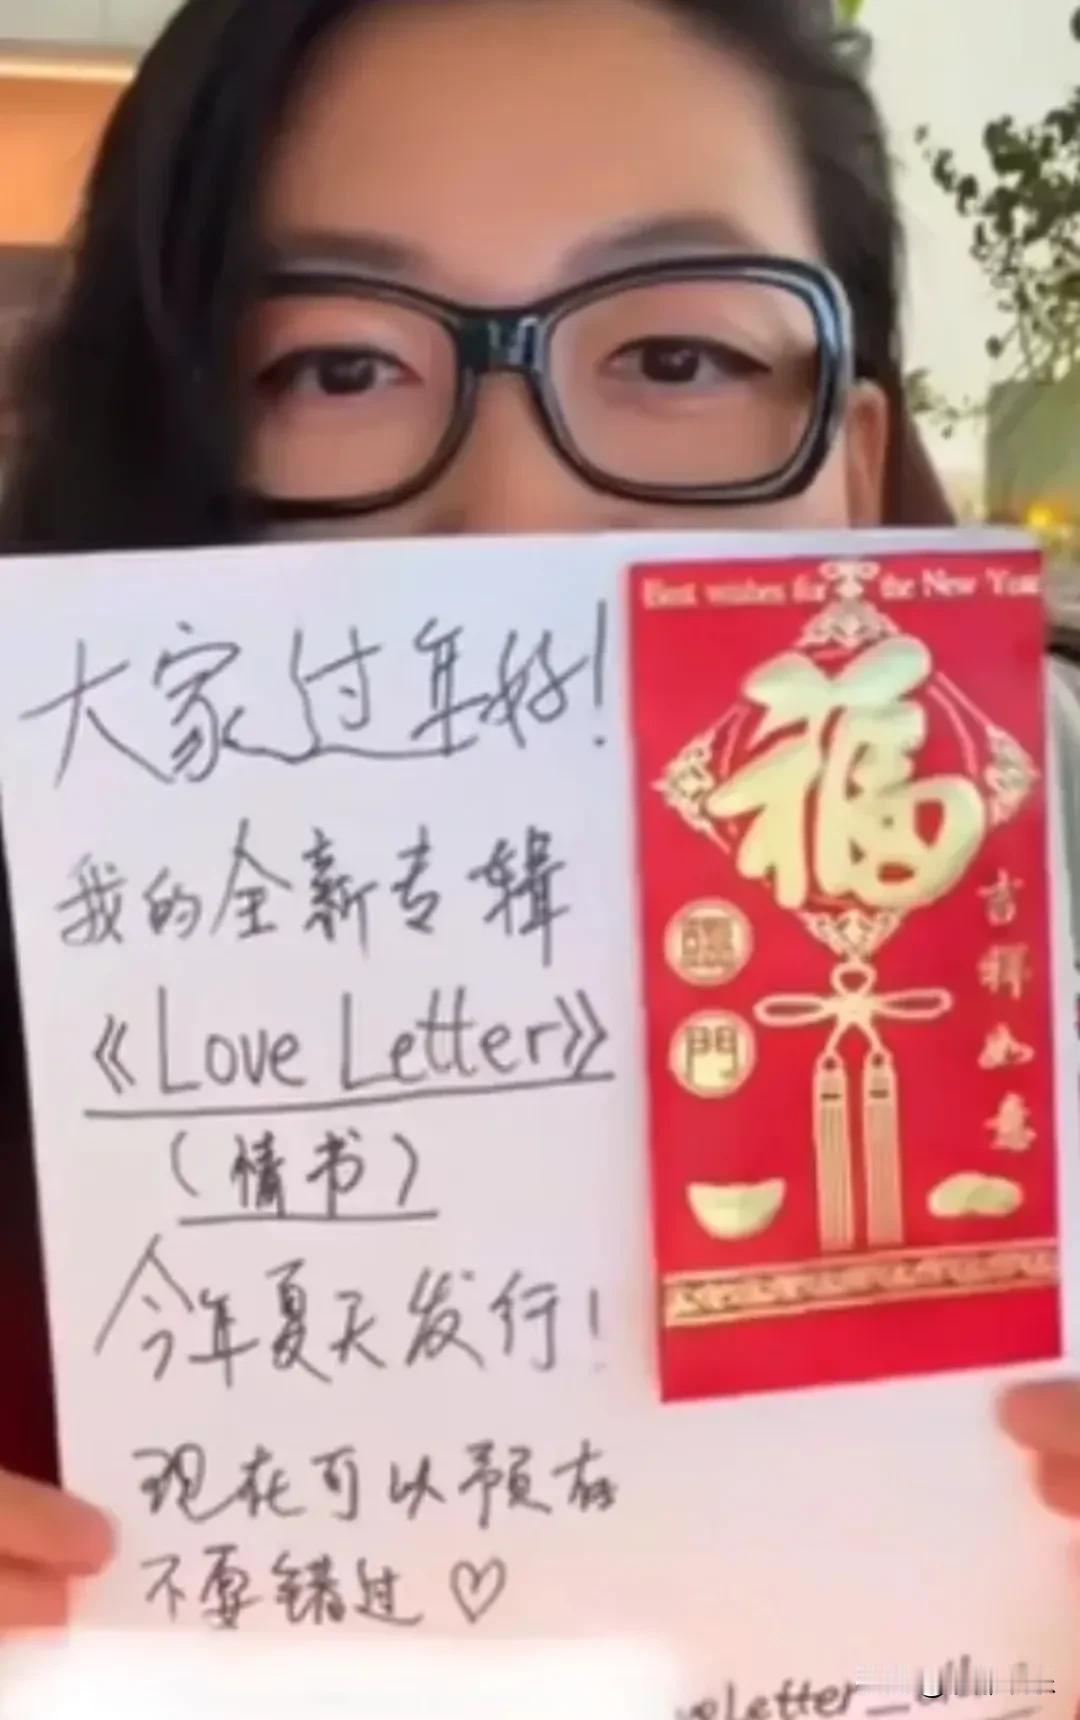 大家过年好!
我的全新专辑
《Love Letter》
(情书)
今年夏天发行!
现在可以预存
不要错过♡
Best wishes for the New Year
福
臨門
吉祥如意